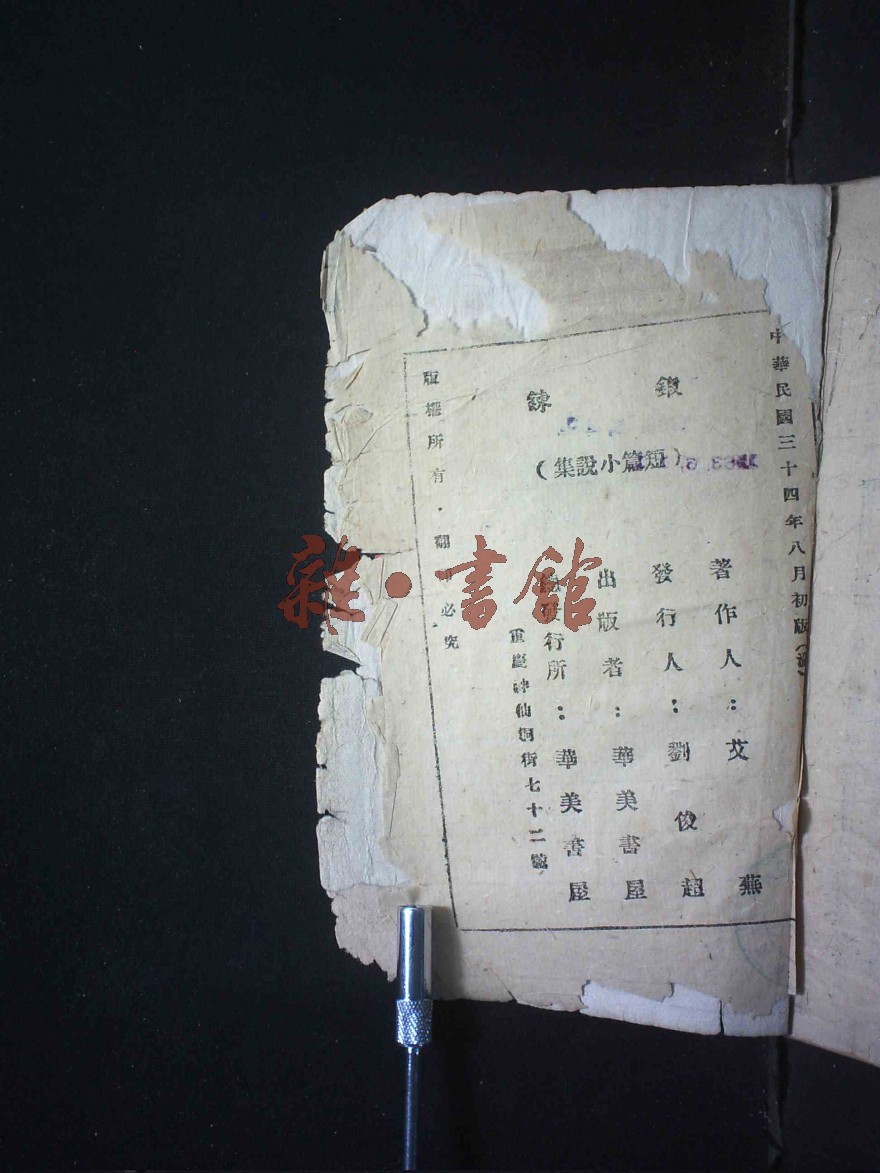 中華民國三十四年八月初版
鍛鍊
（短篇小說集）
著作人：艾蕪
發行人：劉俊超
出版者：華美書屋
總發行所：華美書屋
重慶神仙洞街七十二號
版權所有·翻印必究
雜·書館